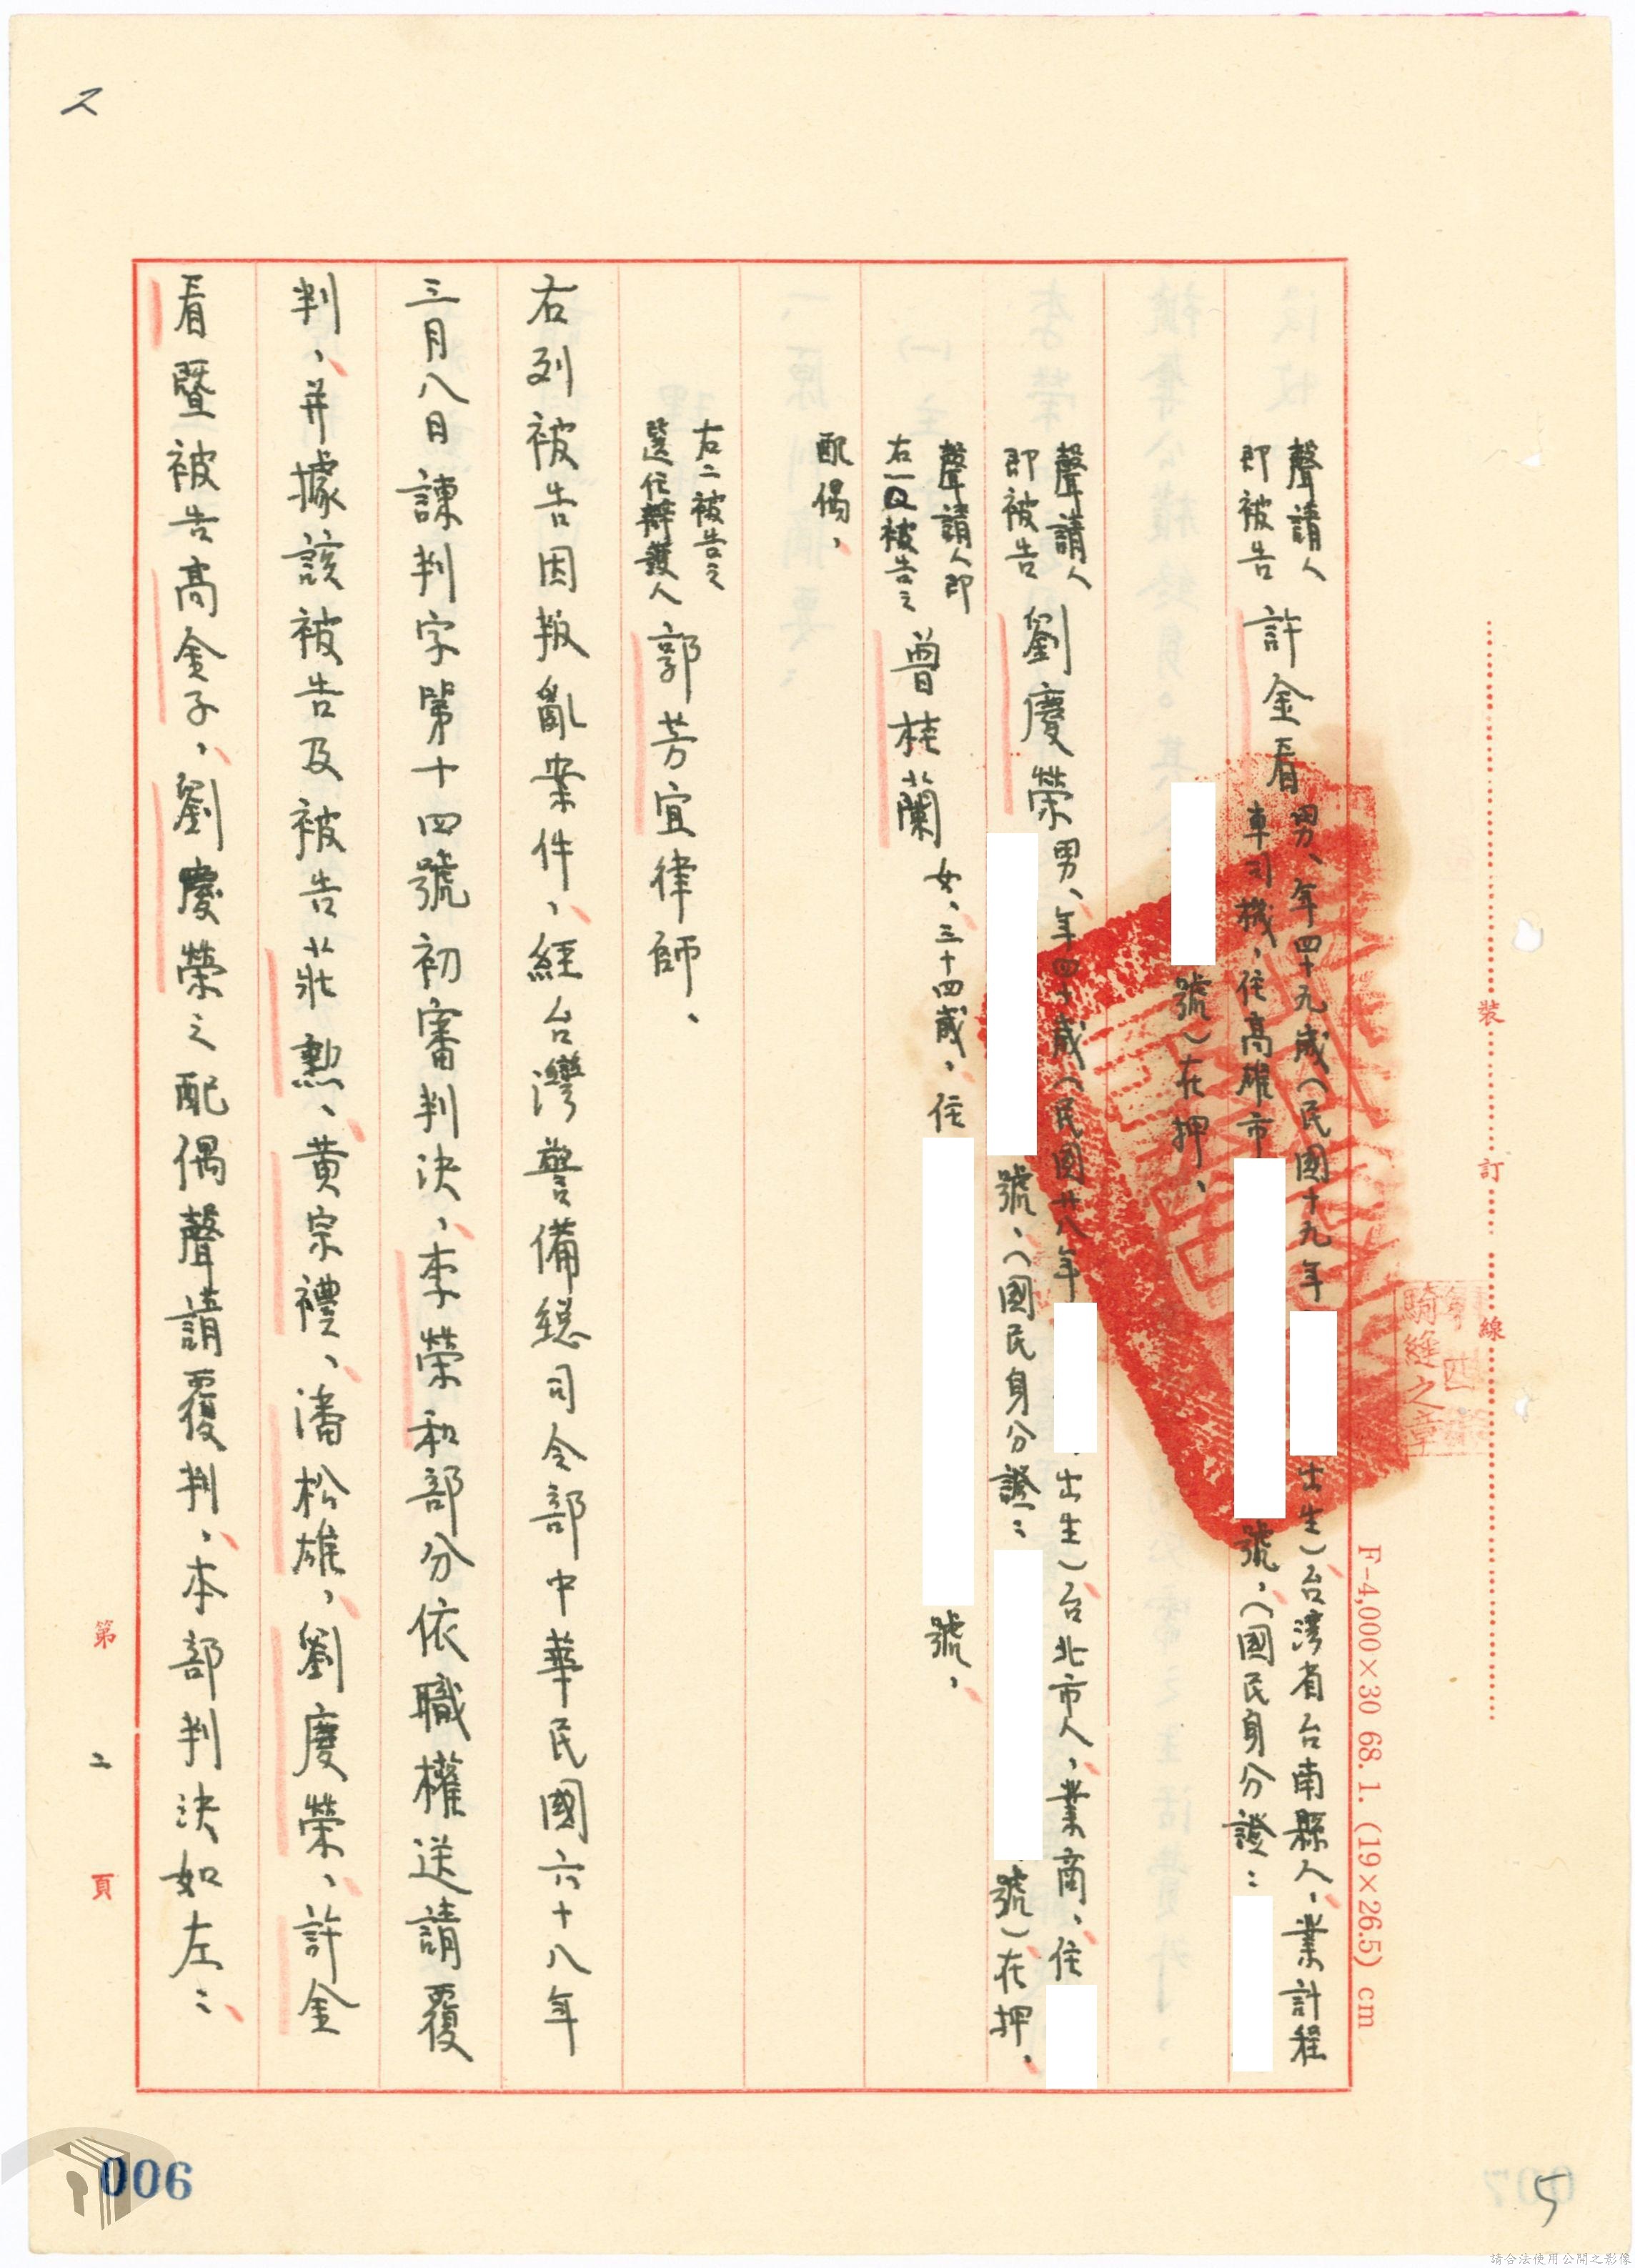 聲請人
即被告
許金看
男、年四十九歲(民國十九年
出生)台灣省台南縣人,業計程
車司機,住高雄市
號,(國民身分證:
號)在押、
聲請人
即被告
劉慶榮
男、年四十歲(民國廿八年
出生)台北市人,業商、住
號,(國民身分證:
號)在押,
聲請人即
右一被告之
配偶,
曾桂蘭
女、三十四歲,住
號,
右二被告之
選任辯護人
郭芳宜律師、
右列被告因叛亂案件,經台灣警備總司令部中華民國六十八年
三月八日諫判字第十四號初審判決,李榮和部分依職權送請覆
判,并據該被告及被告莊勲、黃宗禮、潘松雄,劉慶榮、許金
看暨被告高金子,劉慶榮之配偶聲請覆判,本部判決如左:
裝
訂
線
騎縫之章
F-4,000×30 68.1. (19×26.5) cm
第 二 頁
2
5
006
007
請合法使用公開之影像